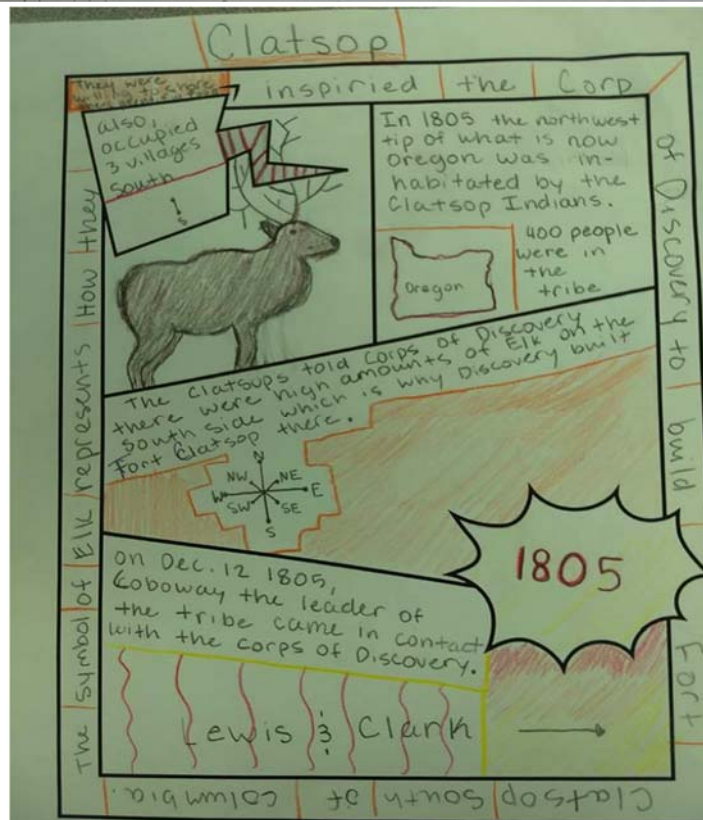 Clatsop
They were
willing to share
The symbol of Elk represents How they
inspiried the Corp
of Discovery to build Fort
Clatsop South of Columbia.
also,
occupied
3 villages
South
S
In 1805 the northwest
tip of what is now
Oregon was in-
habitated by the
Clatsop Indians.
Oregon
400 people
were in
the
tribe
The Clatsups told Corps of Discovery
there were high amounts of Elk on the
South side which is why Discovery built
Fort Clatsop there.
N
NW NE
W E
SW SE
S
1805
On Dec. 12 1805,
Coboway the leader of
the tribe came in contact
with the Corps of Discovery.
Lewis & Clark